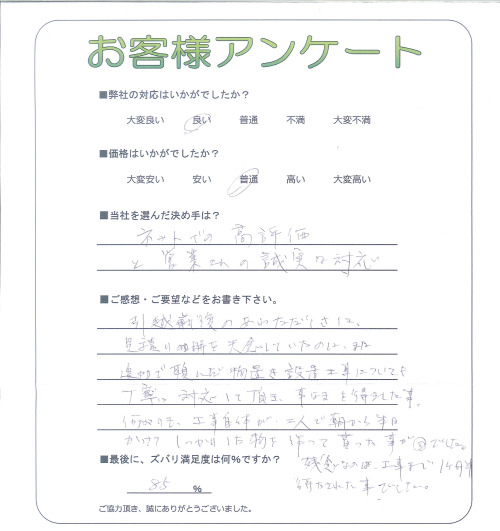 お客様アンケート
■弊社の対応はいかがでしたか？
大変良い 良い 普通 不満 大変不満
■価格はいかがでしたか？
大変安い 安い 普通 高い 大変高い
■当社を選んだ決め手は？
ネットでの高評価
と営業さんの誠実な対応
■ご感想・ご要望などをお書き下さい。
引越前後のあわただしさに、
見積り 紛失していたのに、また
追加で頼んだ物置き設置工事についても
丁寧に対応して頂き、事なきを得ました事。
何よりも、工事自体が、二人で朝から半日
かけて しっかりした物を作って貰った事が でした。
■最後に、ズバリ満足度は何%ですか？
残念なのは、工事まで
待たされた事でした。
85 %
ご協力頂き、誠にありがとうございました。